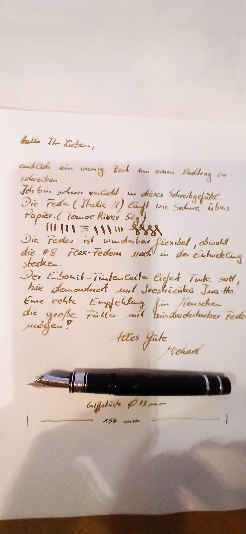 Hallo Ihr Lieben,
endlich ein wenig Zeit um einen Nachtrag zu
schreiben.
Ich bin schon verliebt in dieses Schreibgefühl.
Die Feder (Italic M) läuft wie Sahne über
Papier. (Tomoe River 52g)
Die Feder ist wunderbar flexibel, obwohl
die #8 Flex-Federn noch in der Entwicklung
stecken.
Der Ebonit-Tintenleiter liefert Tinte satt,
hie demonstriert mit Iroshizuku Ina-Ho.
Eine echte Empfehlung für Menschen
die große Füller mit Feder
mögen!
Alles Gute
Michael
Griffstück Ø 13 mm
156 mm